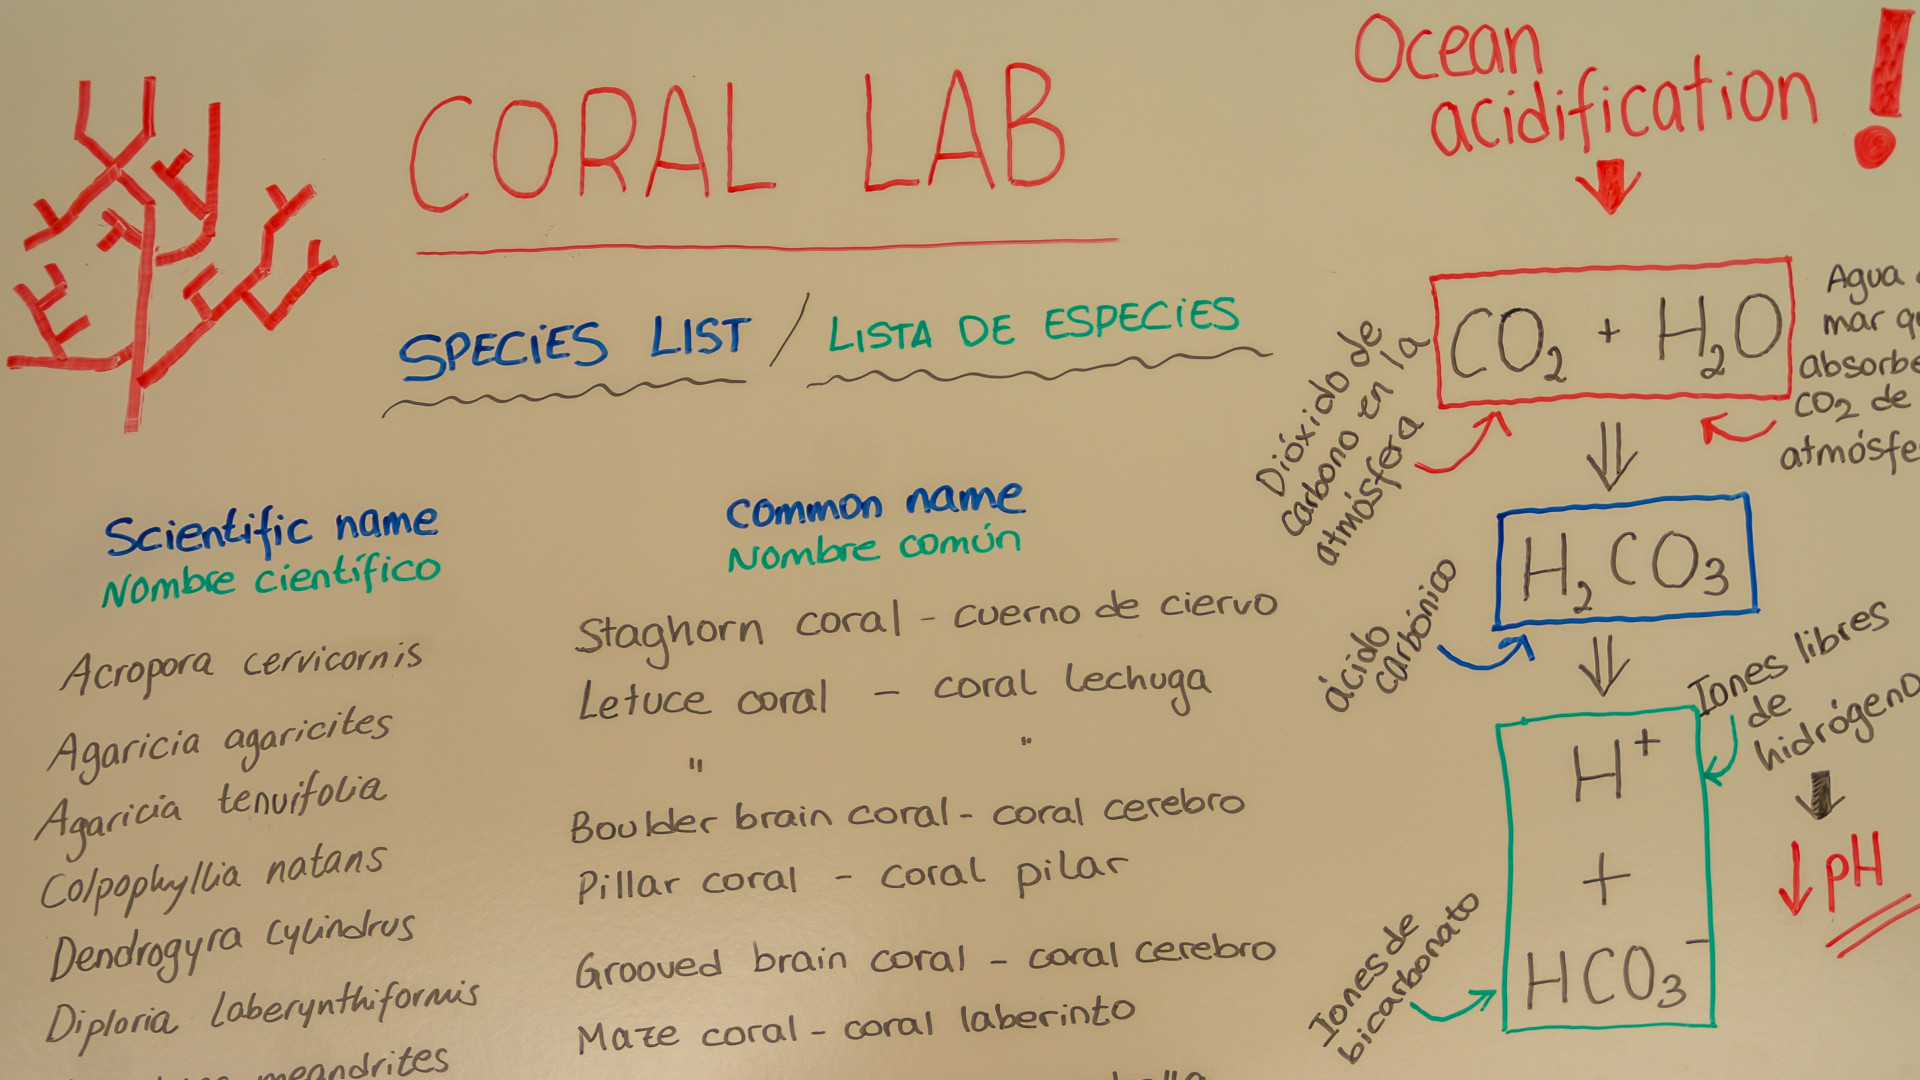 CORAL LAB
SPECIES LIST / LISTA DE ESPECIES
Scientific name
Nombre científico
Common name
Nombre común
Acropora cervicornis
Staghorn coral - cuerno de ciervo
Agaricia agaricites
Letuce coral - coral lechuga
Agaricia tenuifolia
" "
Colpophyllia natans
Boulder brain coral - coral cerebro
Dendrogyra cylindrus
Pillar coral - coral pilar
Diploria laberynthiformis
Grooved brain coral - coral cerebro
meandrites
Maze coral - coral laberinto
Ocean
acidification !
Dióxido de
carbono en la
atmósfera
CO2 + H2O
Agua
mar
absorbe
CO2 de
ácido
carbónico
H2CO3
Iones libres
de
hidrógeno
↓ pH
H+
+
HCO3-
Iones de
bicarbonato